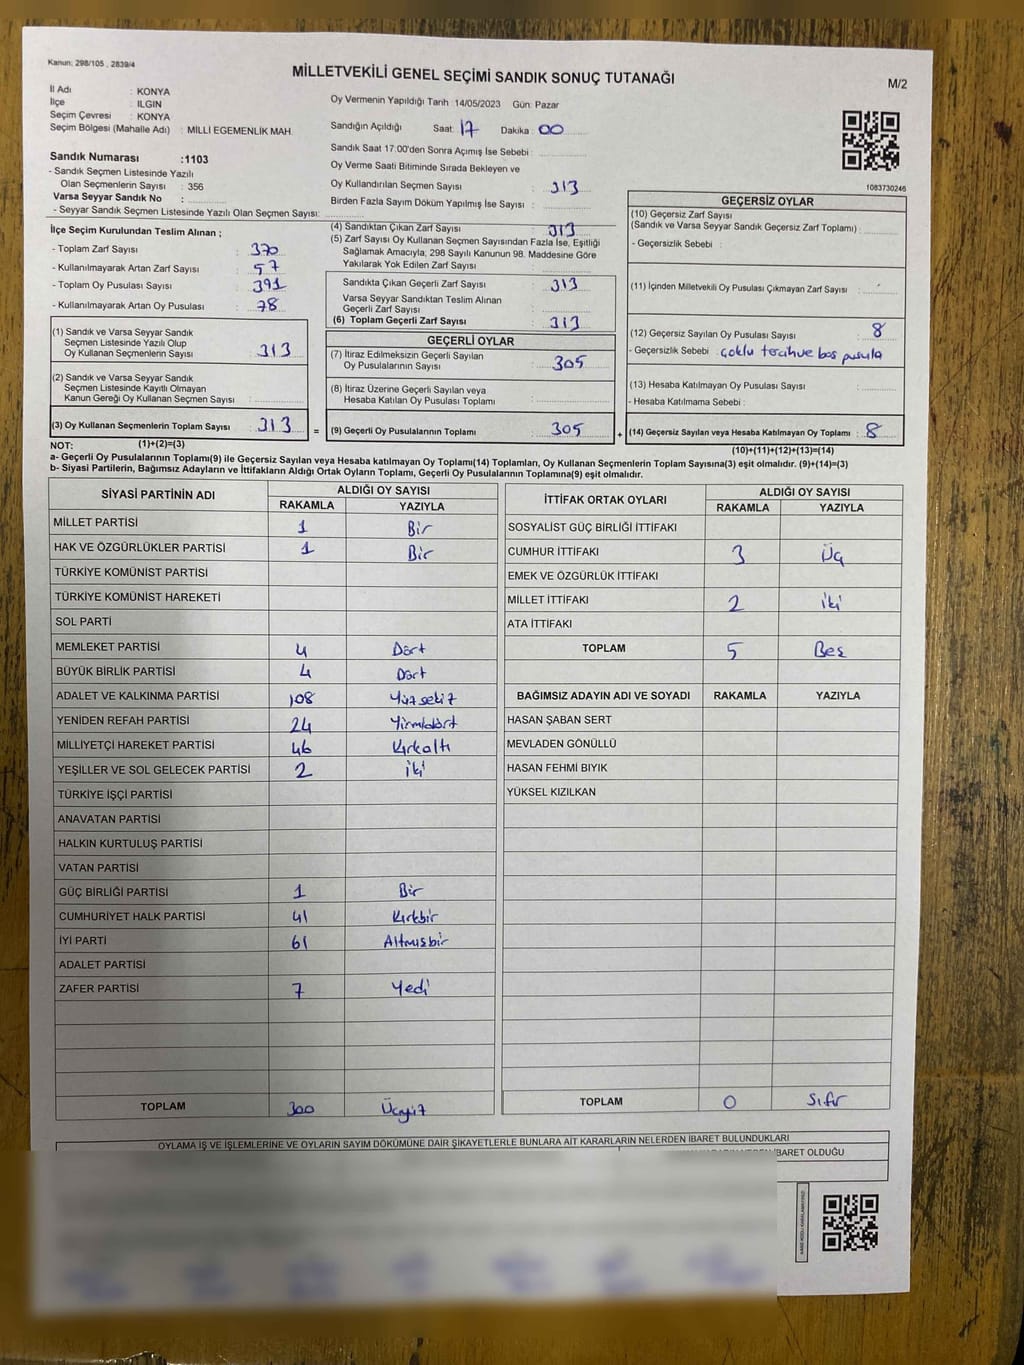 Kanun: 298/105 , 2839/4
MİLLETVEKİLİ GENEL SEÇİMİ SANDIK SONUÇ TUTANAĞI
M/2
İl Adı : KONYA
İlçe : ILGIN
Seçim Çevresi : KONYA
Seçim Bölgesi (Mahalle Adı) : MİLLİ EGEMENLİK MAH.
Oy Vermenin Yapıldığı Tarih :14/05/2023 Gün: Pazar
Sandığın Açıldığı Saat: 17 Dakika : 00
Sandık Saat 17:00'den Sonra Açımış İse Sebebi :
Oy Verme Saati Bitiminde Sırada Bekleyen ve
Oy Kullandırılan Seçmen Sayısı : 313
Birden Fazla Sayım Döküm Yapılmış İse Sayısı :
1083730246
Sandık Numarası :1103
- Sandık Seçmen Listesinde Yazılı
Olan Seçmenlerin Sayısı : 356
Varsa Seyyar Sandık No :
- Seyyar Sandık Seçmen Listesinde Yazılı Olan Seçmen Sayısı:
İlçe Seçim Kurulundan Teslim Alınan ;
- Toplam Zarf Sayısı : 370
- Kullanılmayarak Artan Zarf Sayısı : 57
- Toplam Oy Pusulası Sayısı : 391
- Kullanılmayarak Artan Oy Pusulası : 78
(1) Sandık ve Varsa Seyyar Sandık
Seçmen Listesinde Yazılı Olup
Oy Kullanan Seçmenlerin Sayısı : 313
(2) Sandık ve Varsa Seyyar Sandık
Seçmen Listesinde Kayıtlı Olmayan
Kanun Gereği Oy Kullanan Seçmen Sayısı :
(3) Oy Kullanan Seçmenlerin Toplam Sayısı : 313
(4) Sandıktan Çıkan Zarf Sayısı : 313
(5) Zarf Sayısı Oy Kullanan Seçmen Sayısından Fazla İse, Eşitliği
Sağlamak Amacıyla, 298 Sayılı Kanunun 98. Maddesine Göre
Yakılarak Yok Edilen Zarf Sayısı :
Sandıkta Çıkan Geçerli Zarf Sayısı : 313
Varsa Seyyar Sandıktan Teslim Alınan
Geçerli Zarf Sayısı :
(6) Toplam Geçerli Zarf Sayısı : 313
GEÇERLİ OYLAR
(7) İtiraz Edilmeksizin Geçerli Sayılan
Oy Pusulalarının Sayısı : 305
(8) İtiraz Üzerine Geçerli Sayılan veya
Hesaba Katılan Oy Pusulası Toplamı :
= (9) Geçerli Oy Pusulalarının Toplamı : 305
GEÇERSİZ OYLAR
(10) Geçersiz Zarf Sayısı
(Sandık ve Varsa Seyyar Sandık Geçersiz Zarf Toplamı) :
- Geçersizlik Sebebi :
(11) İçinden Milletvekili Oy Pusulası Çıkmayan Zarf Sayısı :
(12) Geçersiz Sayılan Oy Pusulası Sayısı : 8
- Geçersizlik Sebebi : çoklu tercih ve boş pusula
(13) Hesaba Katılmayan Oy Pusulası Sayısı :
- Hesaba Katılmama Sebebi :
+ (14) Geçersiz Sayılan veya Hesaba Katılmayan Oy Toplamı : 8
NOT: (1)+(2)=(3)
(10)+(11)+(12)+(13)=(14)
a- Geçerli Oy Pusulalarının Toplamı(9) ile Geçersiz Sayılan veya Hesaba katılmayan Oy Toplamı(14) Toplamları, Oy Kullanan Seçmenlerin Toplam Sayısına(3) eşit olmalıdır. (9)+(14)=(3)
b- Siyasi Partilerin, Bağımsız Adayların ve İttifakların Aldığı Ortak Oyların Toplamı, Geçerli Oy Pusulalarının Toplamına(9) eşit olmalıdır.
SİYASİ PARTİNİN ADI ALDIĞI OY SAYISI
RAKAMLA YAZIYLA
MİLLET PARTİSİ 1 Bir
HAK VE ÖZGÜRLÜKLER PARTİSİ 1 Bir
TÜRKİYE KOMÜNİST PARTİSİ
TÜRKİYE KOMÜNİST HAREKETİ
SOL PARTİ
MEMLEKET PARTİSİ 4 Dört
BÜYÜK BİRLİK PARTİSİ 4 Dört
ADALET VE KALKINMA PARTİSİ 108 Yüzsekiz
YENİDEN REFAH PARTİSİ 24 Yirmidört
MİLLİYETÇİ HAREKET PARTİSİ 46 Kırkaltı
YEŞİLLER VE SOL GELECEK PARTİSİ 2 İki
TÜRKİYE İŞÇİ PARTİSİ
ANAVATAN PARTİSİ
HALKIN KURTULUŞ PARTİSİ
VATAN PARTİSİ
GÜÇ BİRLİĞİ PARTİSİ 1 Bir
CUMHURİYET HALK PARTİSİ 41 Kırkbir
İYİ PARTİ 61 Altmışbir
ADALET PARTİSİ
ZAFER PARTİSİ 7 Yedi
TOPLAM 300 Üçyüz
İTTİFAK ORTAK OYLARI ALDIĞI OY SAYISI
RAKAMLA YAZIYLA
SOSYALİST GÜÇ BİRLİĞİ İTTİFAKI
CUMHUR İTTİFAKI 3 Üç
EMEK VE ÖZGÜRLÜK İTTİFAKI
MİLLET İTTİFAKI 2 İki
ATA İTTİFAKI
TOPLAM 5 Beş
BAĞIMSIZ ADAYIN ADI VE SOYADI RAKAMLA YAZIYLA
HASAN ŞABAN SERT
MEVLADEN GÖNÜLLÜ
HASAN FEHMİ BIYIK
YÜKSEL KIZILKAN
TOPLAM 0 Sıfır
OYLAMA İŞ VE İŞLEMLERİNE VE OYLARIN SAYIM DÖKÜMÜNE DAİR ŞİKAYETLERLE BUNLARA AİT KARARLARIN NELERDEN İBARET BULUNDUKLARI
İBARET OLDUĞU